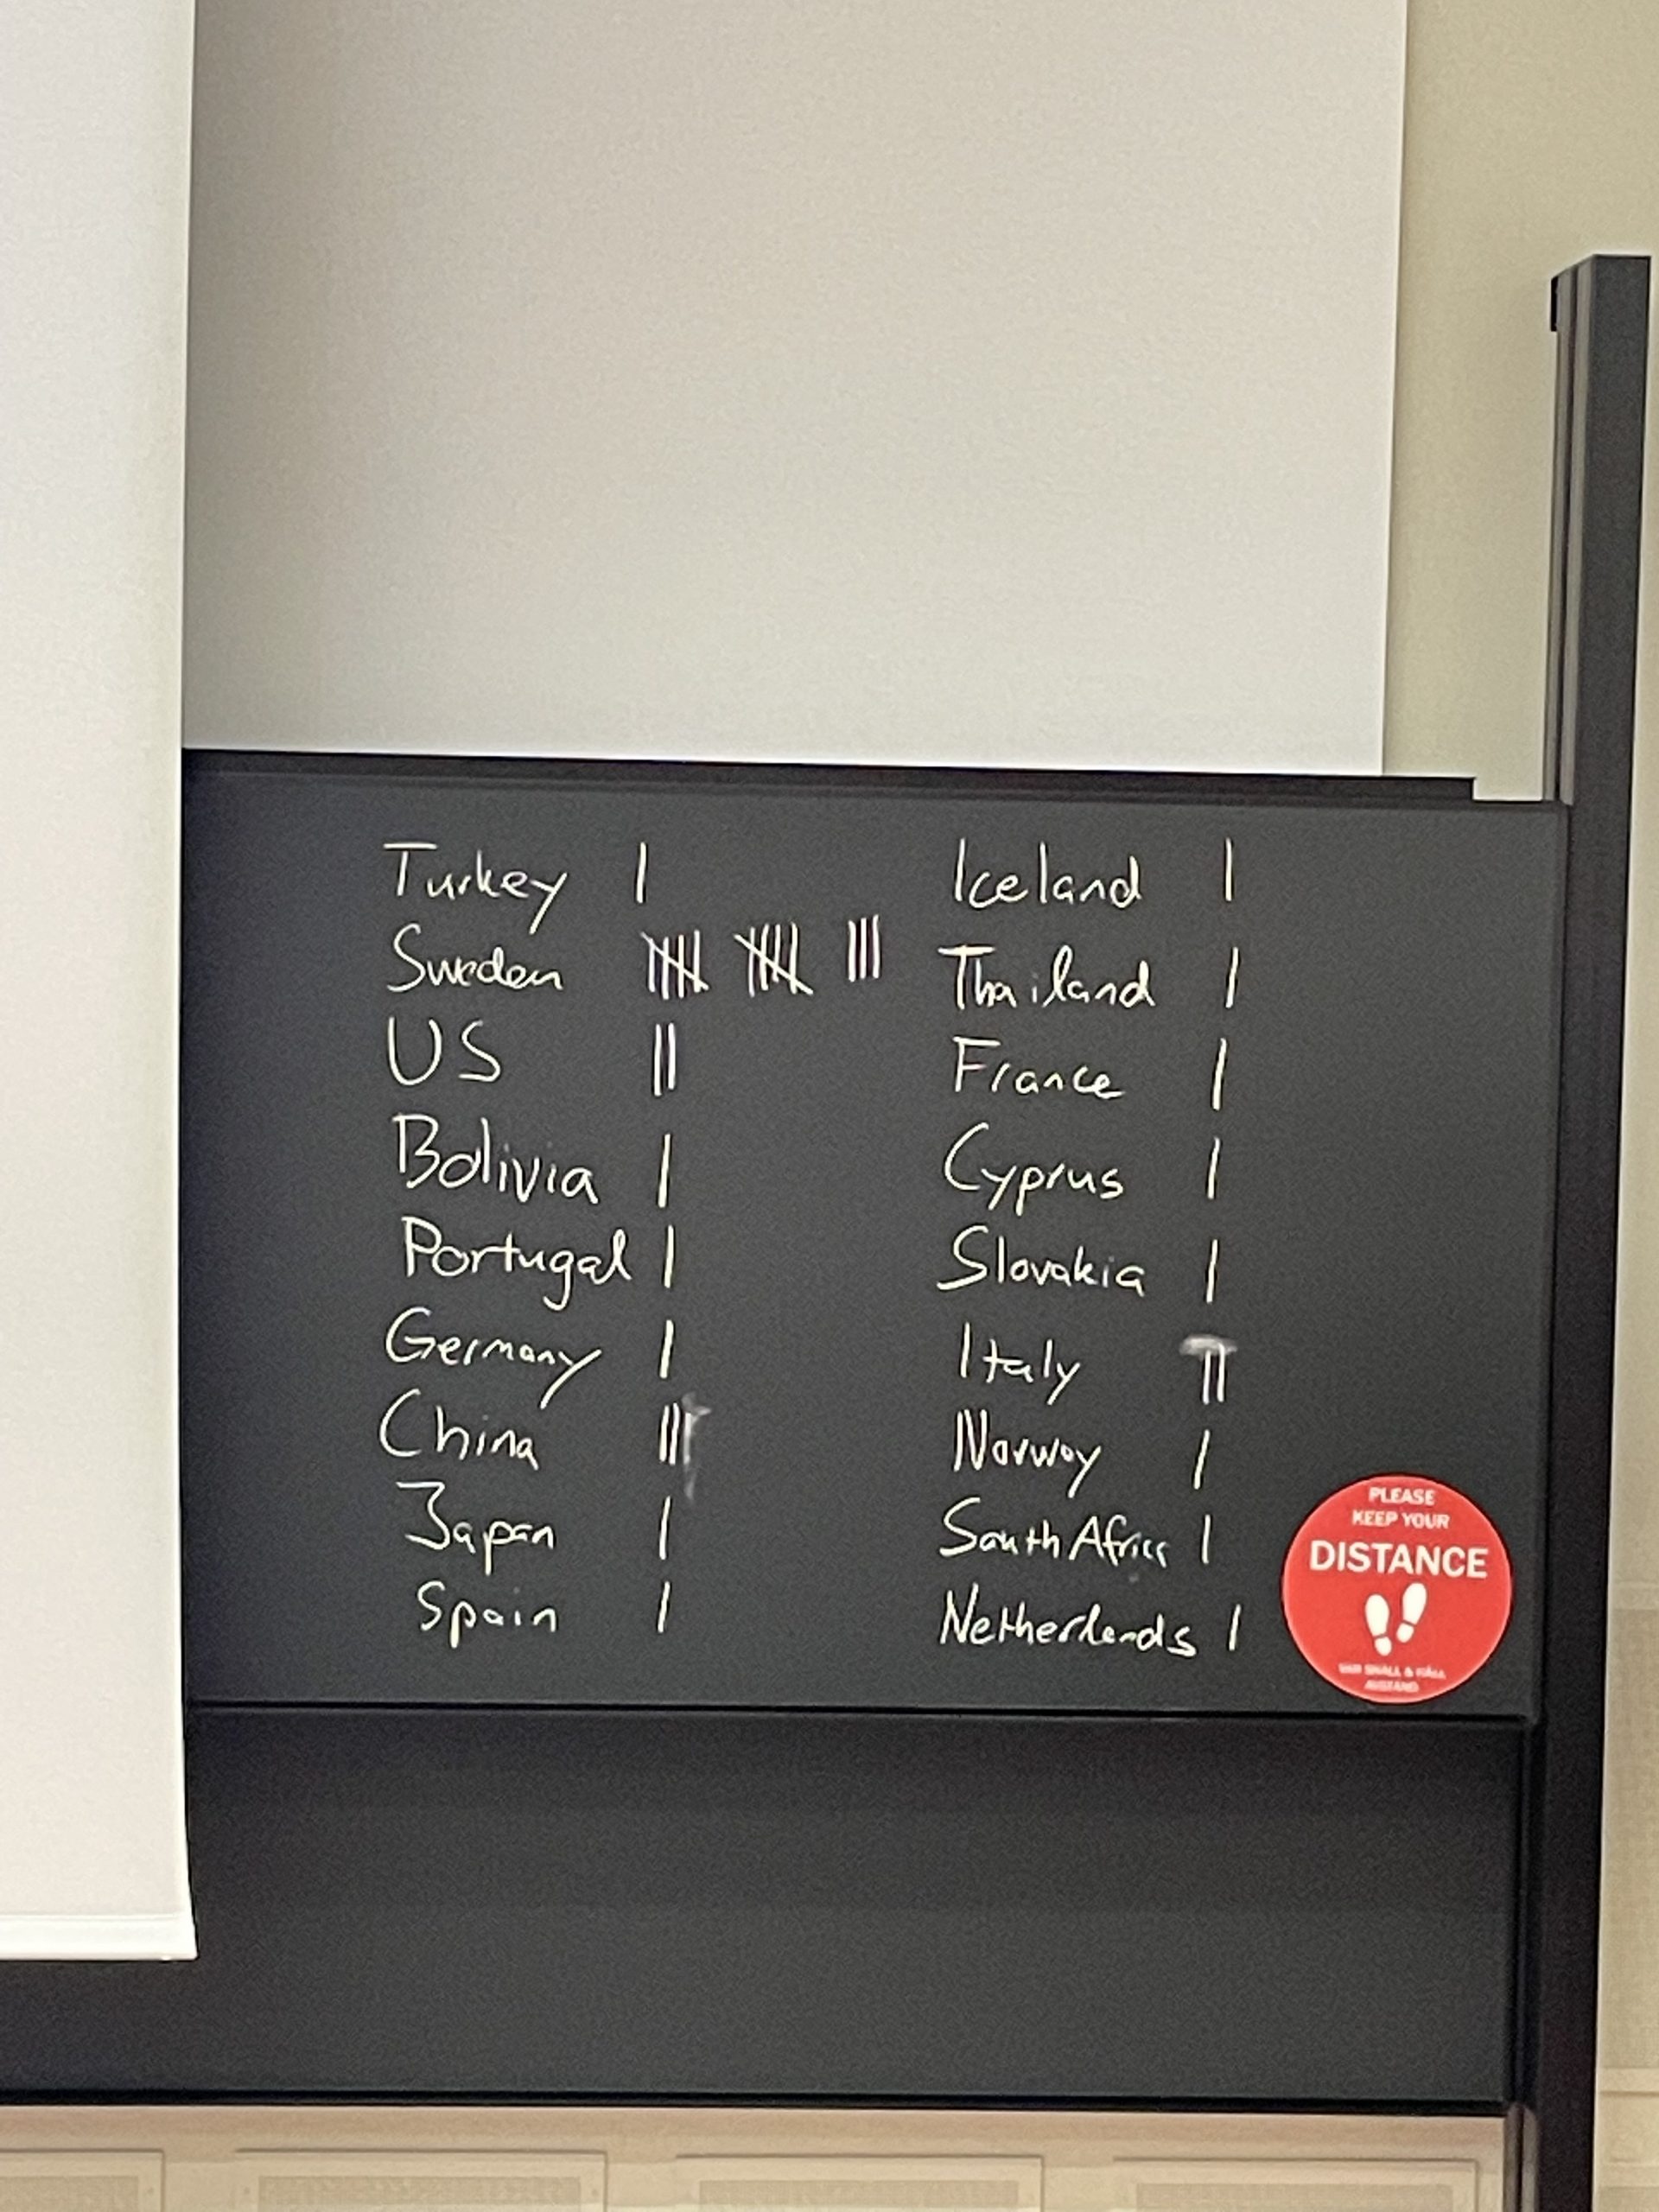 Turkey |
Sweden 卌 卌 |||
US ||
Bolivia |
Portugal |
Germany |
China |||
Japan |
Spain |
Iceland |
Thailand |
France |
Cyprus |
Slovakia |
Italy ||
Norway |
South Africa |
Netherlands |
PLEASE
KEEP YOUR
DISTANCE